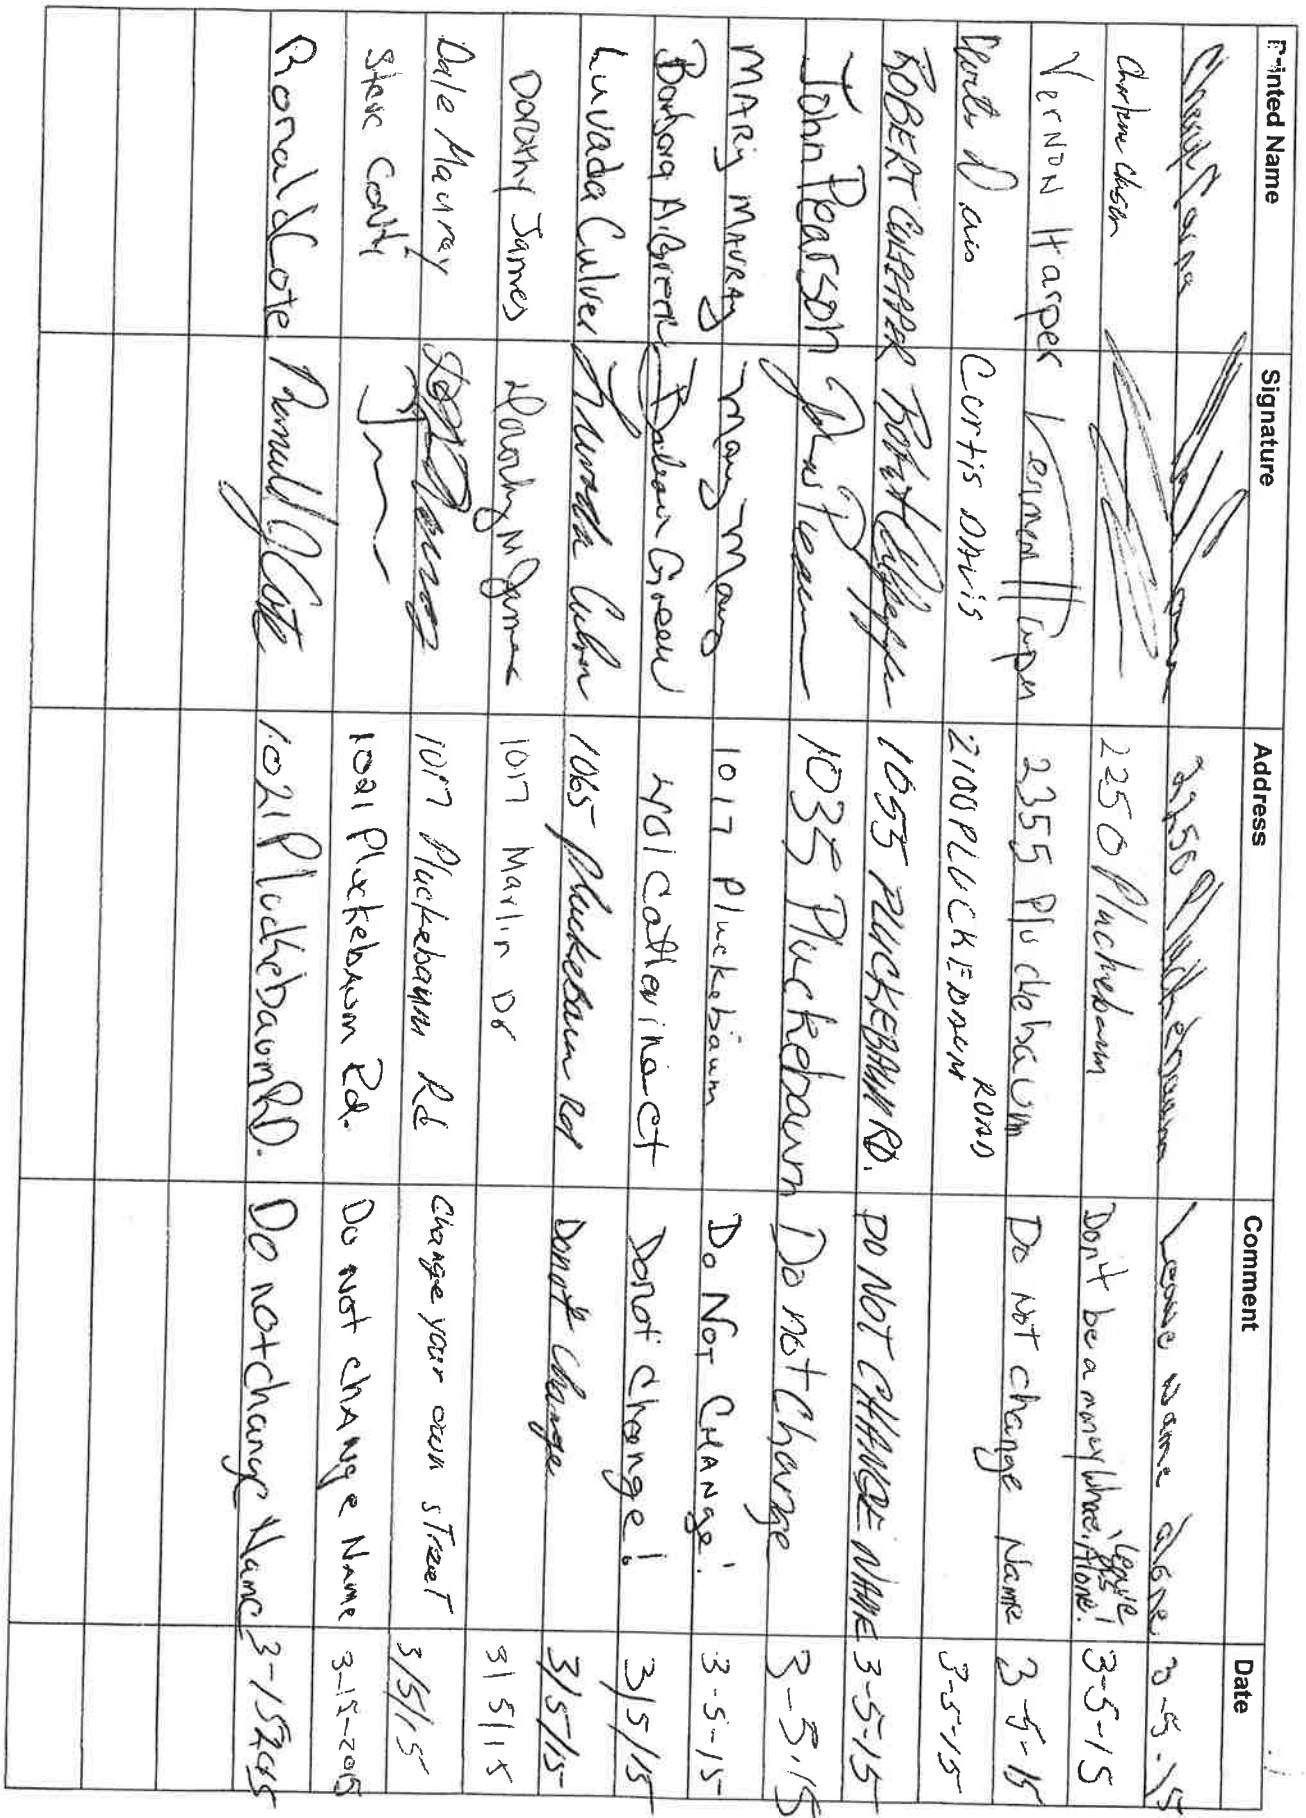 Printed Name Signature Address Comment Date
Leave name alone 3-5-15
2250 Pluckebaum Don't be a money Whore, leave Alone! 3-5-15
Vernon Harper Vernon Harper 2355 Pluckebaum Do Not change Name 3-5-15
Curtis Davis CURTIS DAVIS 2100 PLUCKEBAUM ROAD 3-5-15
ROBERT CULPEPPER Robert Culpepper 1055 PLUCKEBAUM RD. DO NOT CHANGE NAME 3-5-15
John Pearson John Pearson 1035 Pluckebaum Do not Change 3-5-15
MARY MAURAY Mary Mauray 1017 Pluckebaum Do NOT CHANge! 3-5-15
Barbara A. Green Barbara Green 401 Catherina Ct Do not Change! 3/5/15
Luvada Culver Luvada Culver 1065 Pluckebaum Rd Don't Change 3/5/15
Dorothy James Dorothy M James 1017 Marlin Dr 3/5/15
Dale Mauray 1017 Pluckebaum Rd Change your own sTreeT 3/5/15
Steve Conti 1021 Pluckebaum Rd. Do Not chANge NAme 3-15-2015
Ronald Cote Ronald J Cote 1021 Pluckebaum RD. Do not change Name 3-15-2015